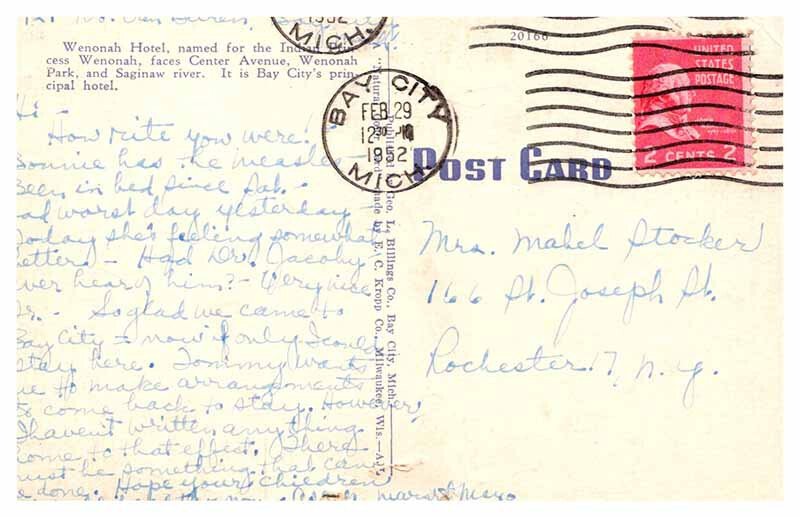 1952
MICH.
Wenonah Hotel, named for the Indian Prin-
cess Wenonah, faces Center Avenue, Wenonah
Park, and Saginaw river. It is Bay City's prin-
cipal hotel.
Hi -
How rite you were!
Bonnie has the measles -
Been in bed since Sat. -
ad worst day yesterday -
Today she's feeling somewhat
better - Had Dr. Jacoby
ver hear of him? - Very nice
Dr. - So glad we came to
Bay City - now if only I could
stay here. Tommy wants
me to make arrangements
to come back to stay. However,
I haven't written anything
home to that effect. There
must be something that can
e done. Hope your children
Geo. L. Billings Co., Bay City, Mich.
made by E. C. Kropp Co., Milwaukee, Wis.
20166
BAY CITY
FEB 29
12 30 PM
1952
MICH.
POST CARD
UNITED
STATES
POSTAGE
2 CENTS 2
Mrs. Mabel Stocker
166 St. Joseph St.
Rochester 17, N.Y.